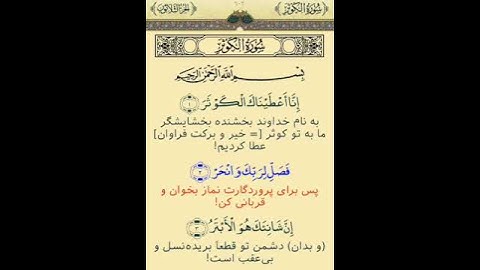 سُورَةُ الكَوْثَرِ
الجُزْءُ الثَّلَاثُونَ
سُورَةُ الكَوْثَرِ
بِسْمِ اللَّهِ الرَّحْمَنِ الرَّحِيمِ
إِنَّا أَعْطَيْنَاكَ الْكَوْثَرَ ﴿١﴾
به نام خداوند بخشنده بخشایشگر
ما به تو کوثر [= خیر و برکت فراوان]
عطا کردیم!
فَصَلِّ لِرَبِّكَ وَانْحَرْ ﴿٢﴾
پس برای پروردگارت نماز بخوان و
قربانی کن!
إِنَّ شَانِئَكَ هُوَ الْأَبْتَرُ ﴿٣﴾
(و بدان) دشمن تو قطعاً بریده‌نسل و
بی‌عقب است!